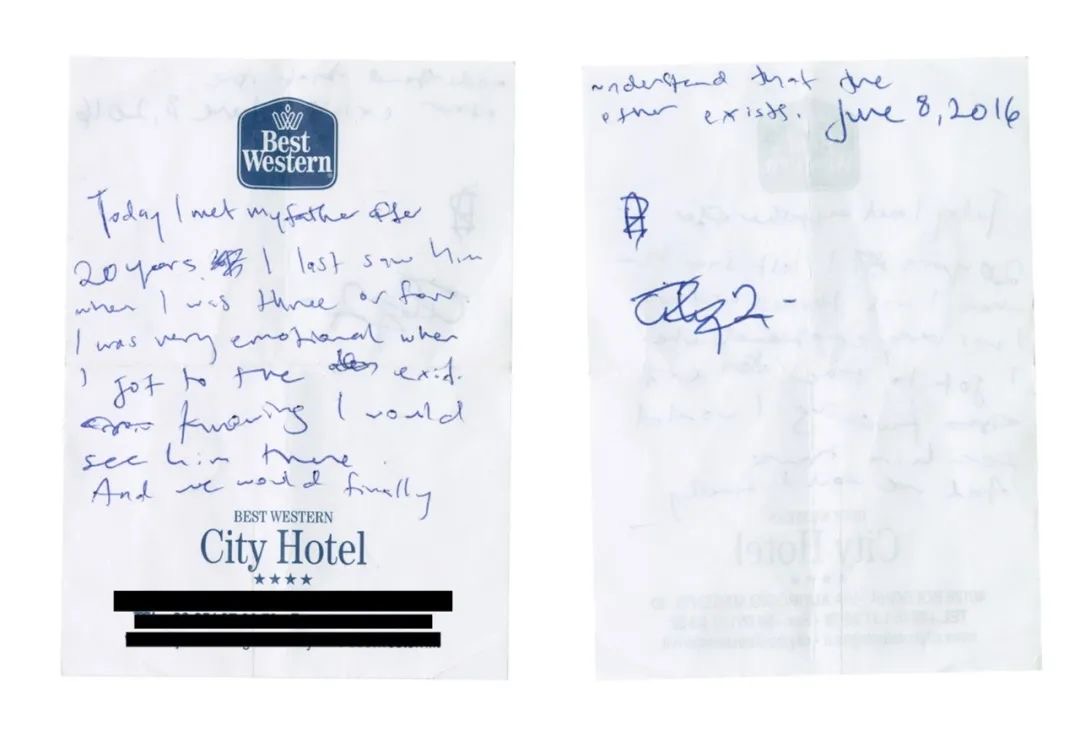 Best
Western
Today I met my father after
20 years. I last saw him
when I was three or four.
I was very emotional when
I got to the exit.
knowing I would
see him there.
And we would finally
BEST WESTERN
City Hotel
understand that the
other exists. June 8, 2016